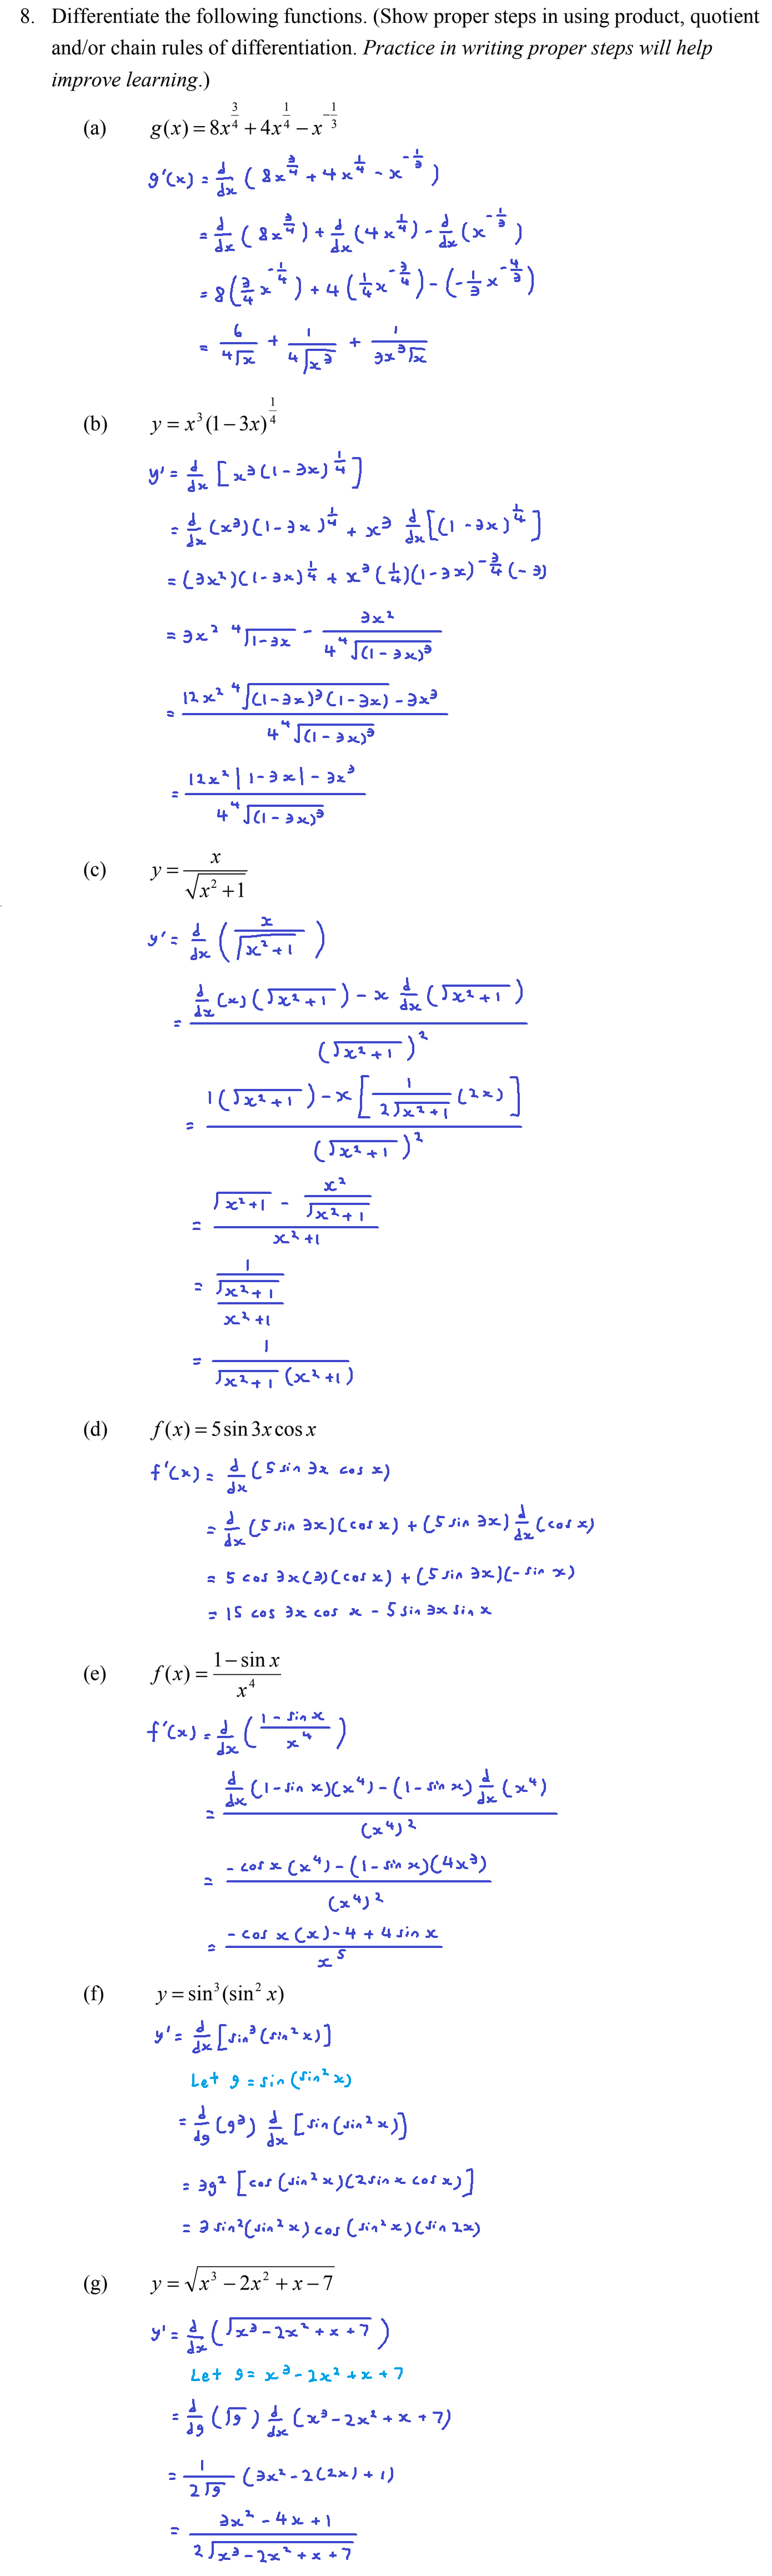 8. Differentiate the following functions. (Show proper steps in using product, quotient
and/or chain rules of differentiation. Practice in writing proper steps will help
improve learning.)
(a) g(x) = 8x^(3/4) + 4x^(1/4) − x^(−1/3)
g'(x) = d/dx (8x^(3/4) + 4x^(1/4) − x^(−1/3))
= d/dx (8x^(3/4)) + d/dx (4x^(1/4)) − d/dx (x^(−1/3))
= 8(3/4 x^(−1/4)) + 4(1/4 x^(−3/4)) − (−1/3 x^(−4/3))
= 6/⁴√x + 1/⁴√(x³) + 1/(3x ³√x)
(b) y = x³(1−3x)^(1/4)
y' = d/dx [x³(1−3x)^(1/4)]
= d/dx (x³)(1−3x)^(1/4) + x³ d/dx [(1−3x)^(1/4)]
= (3x²)(1−3x)^(1/4) + x³(1/4)(1−3x)^(−3/4)(−3)
= 3x² ⁴√(1−3x) − 3x²/(4 ⁴√((1−3x)³))
= (12x² ⁴√((1−3x)³(1−3x)) − 3x³)/(4 ⁴√((1−3x)³))
= (12x²|1−3x| − 3x³)/(4 ⁴√((1−3x)³))
(c) y = x/√(x²+1)
y' = d/dx (x/√(x²+1))
= (d/dx (x)(√(x²+1)) − x d/dx (√(x²+1)))/(√(x²+1))²
= (1(√(x²+1)) − x[1/(2√(x²+1)) (2x)])/(√(x²+1))²
= (√(x²+1) − x²/√(x²+1))/(x²+1)
= (1/√(x²+1))/(x²+1)
= 1/(√(x²+1) (x²+1))
(d) f(x) = 5 sin 3x cos x
f'(x) = d/dx (5 sin 3x cos x)
= d/dx (5 sin 3x)(cos x) + (5 sin 3x) d/dx (cos x)
= 5 cos 3x(3)(cos x) + (5 sin 3x)(− sin x)
= 15 cos 3x cos x − 5 sin 3x sin x
(e) f(x) = (1 − sin x)/x⁴
f'(x) = d/dx ((1 − sin x)/x⁴)
= (d/dx (1 − sin x)(x⁴) − (1 − sin x) d/dx (x⁴))/(x⁴)²
= (− cos x (x⁴) − (1 − sin x)(4x³))/(x⁴)²
= (− cos x (x) − 4 + 4 sin x)/x⁵
(f) y = sin³(sin² x)
y' = d/dx [sin³(sin² x)]
Let g = sin(sin² x)
= d/dg (g³) d/dx [sin(sin² x)]
= 3g² [cos(sin² x)(2 sin x cos x)]
= 3 sin²(sin² x) cos(sin² x)(sin 2x)
(g) y = √(x³ − 2x² + x − 7)
y' = d/dx (√(x³ − 2x² + x + 7))
Let g = x³ − 2x² + x + 7
= d/dg (√g) d/dx (x³ − 2x² + x + 7)
= 1/(2√g) (3x² − 2(2x) + 1)
= (3x² − 4x + 1)/(2√(x³ − 2x² + x + 7))